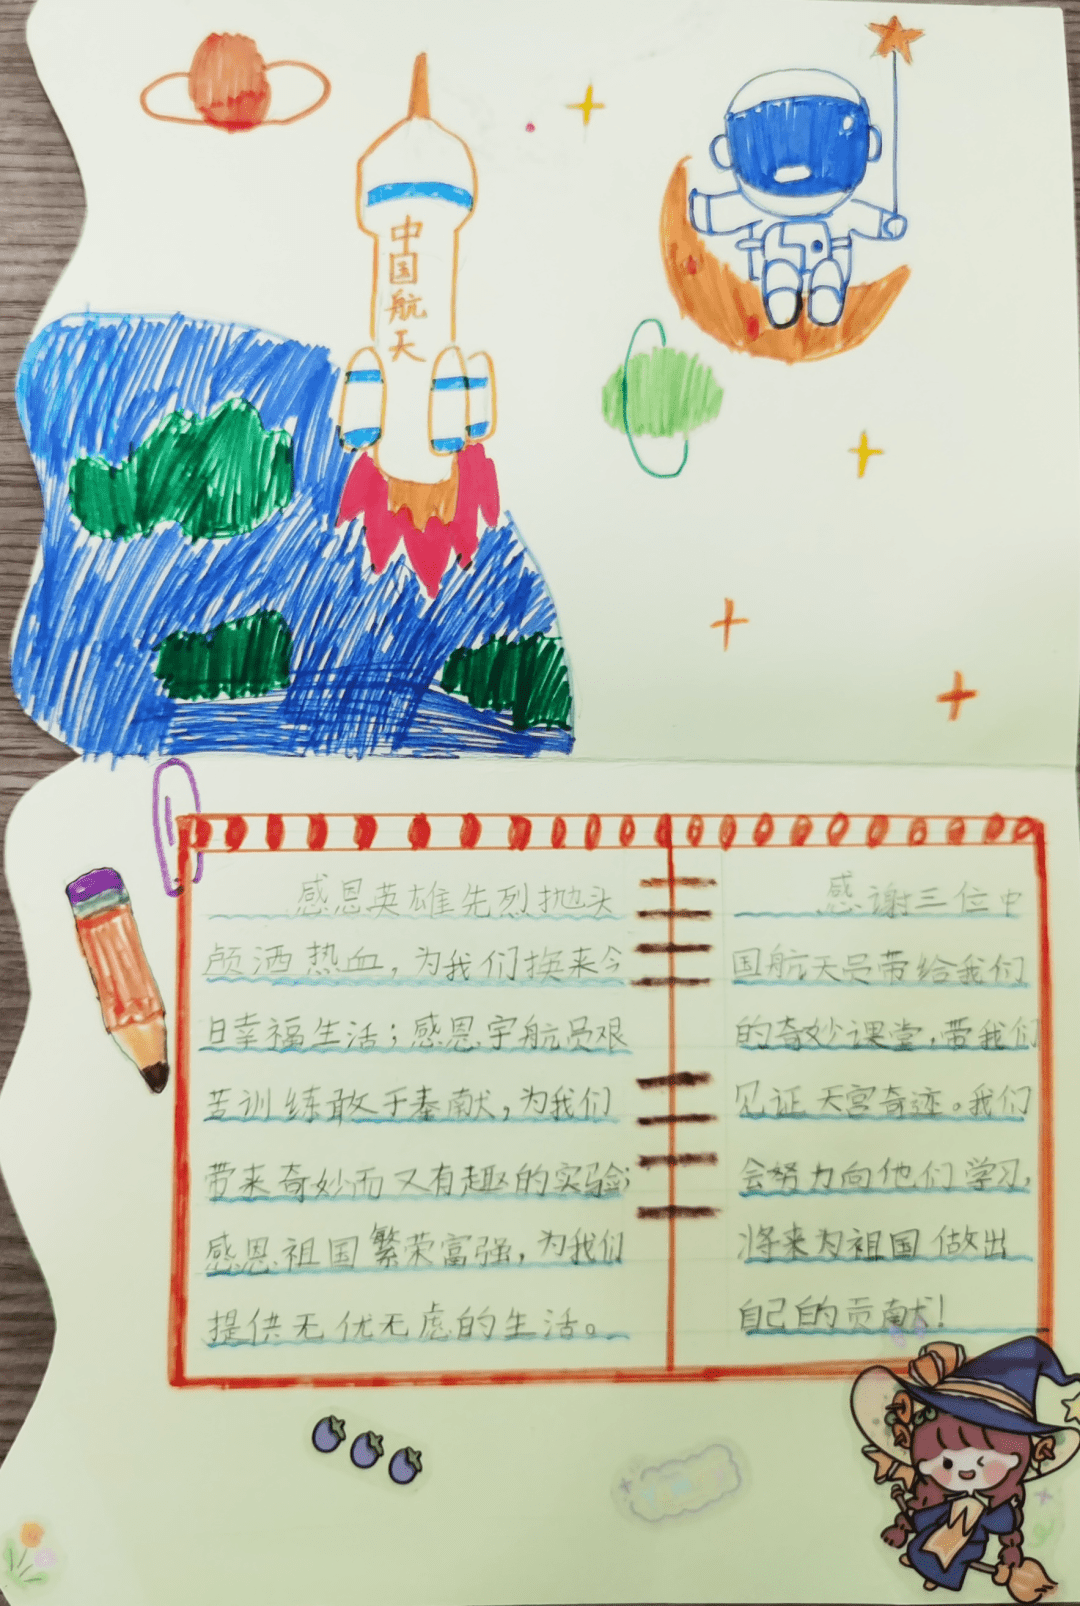 中国航天
感恩英雄先烈抛头
颅洒热血，为我们换来今
日幸福生活；感恩宇航员艰
苦训练敢于奉献，为我们
带来奇妙而又有趣的实验；
感恩祖国繁荣富强，为我们
提供无优无虑的生活。
感谢三位中
国航天员带给我们
的奇妙课堂，带我们
见证天宫奇迹。我们
会努力向他们学习，
将来为祖国做出
自己的贡献！